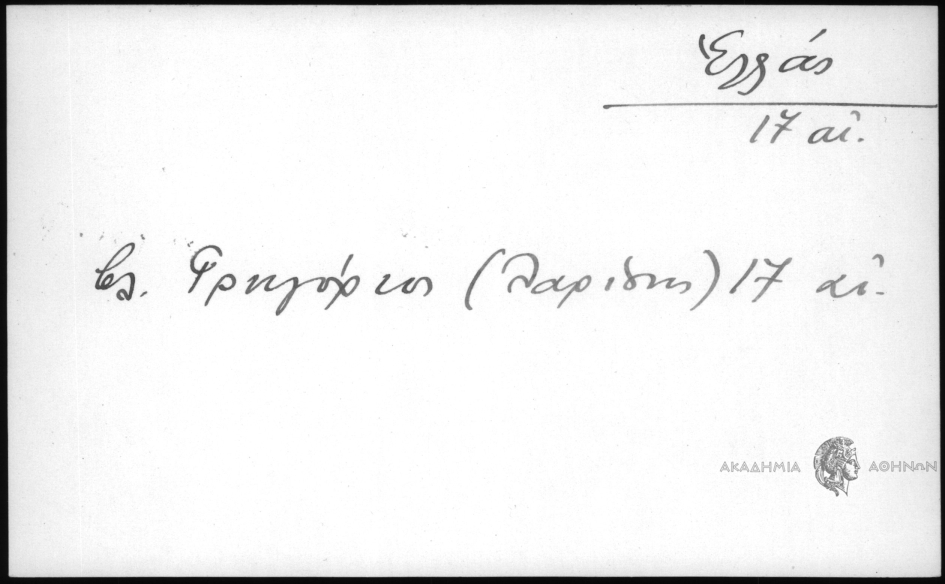 Ἑλλάς
17 αἰ.
βλ. Γρηγόριος (Λαρίσης) 17 αἰ.
ΑΚΑΔΗΜΙΑ ΑΘΗΝΩΝ